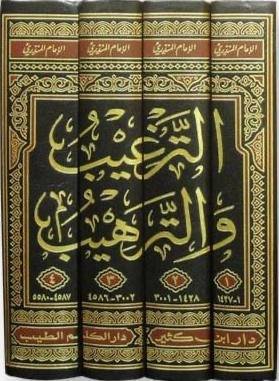 الإمام المنذري الإمام المنذري الإمام المنذري الإمام المنذري
الترغيب
والترهيب
١ ٢ ٣ ٤
١-١٤٢٧ ١٤٢٨-٣٠٠١ ٣٠٠٢-٤٥٨٦ ٤٥٨٧-٥٥٨٠
دار ابن كثير دار الكلم الطيب